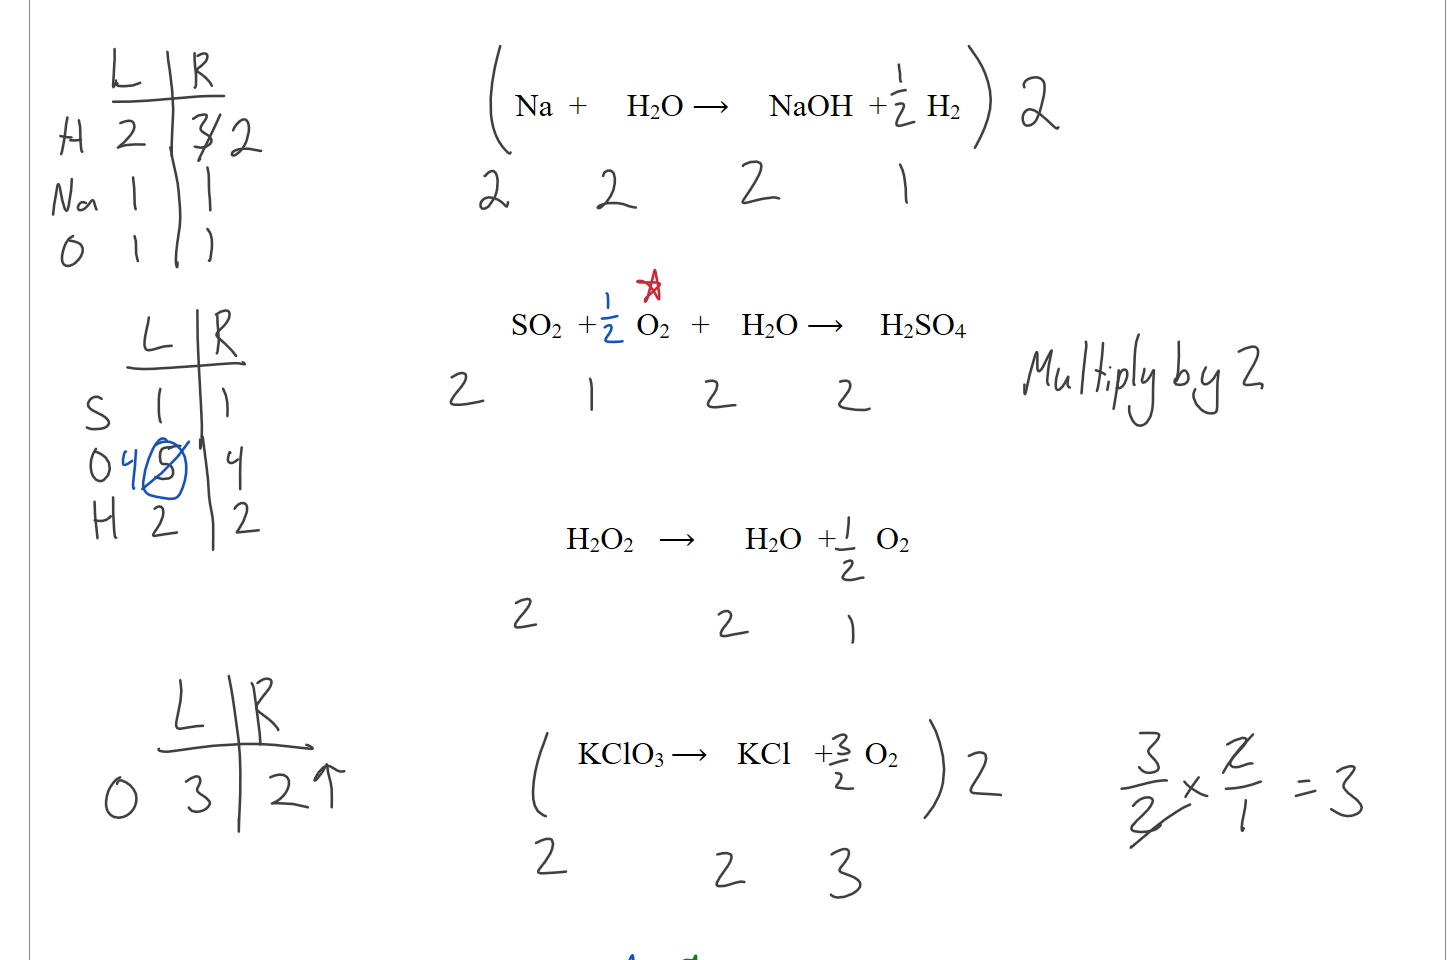 L R
H 2 3 2
Na 1 1
O 1 1
(Na + H₂O ⟶ NaOH + 1/2 H₂) 2
2 2 2 1
L R
S 1 1
O 4 5 4
H 2 2
SO₂ + 1/2 O₂ + H₂O ⟶ H₂SO₄
2 1 2 2
Multiply by 2
H₂O₂ ⟶ H₂O + 1/2 O₂
2 2 1
L R
O 3 2↑
(KClO₃ ⟶ KCl + 3/2 O₂) 2
2 2 3
3/2 × 2/1 = 3